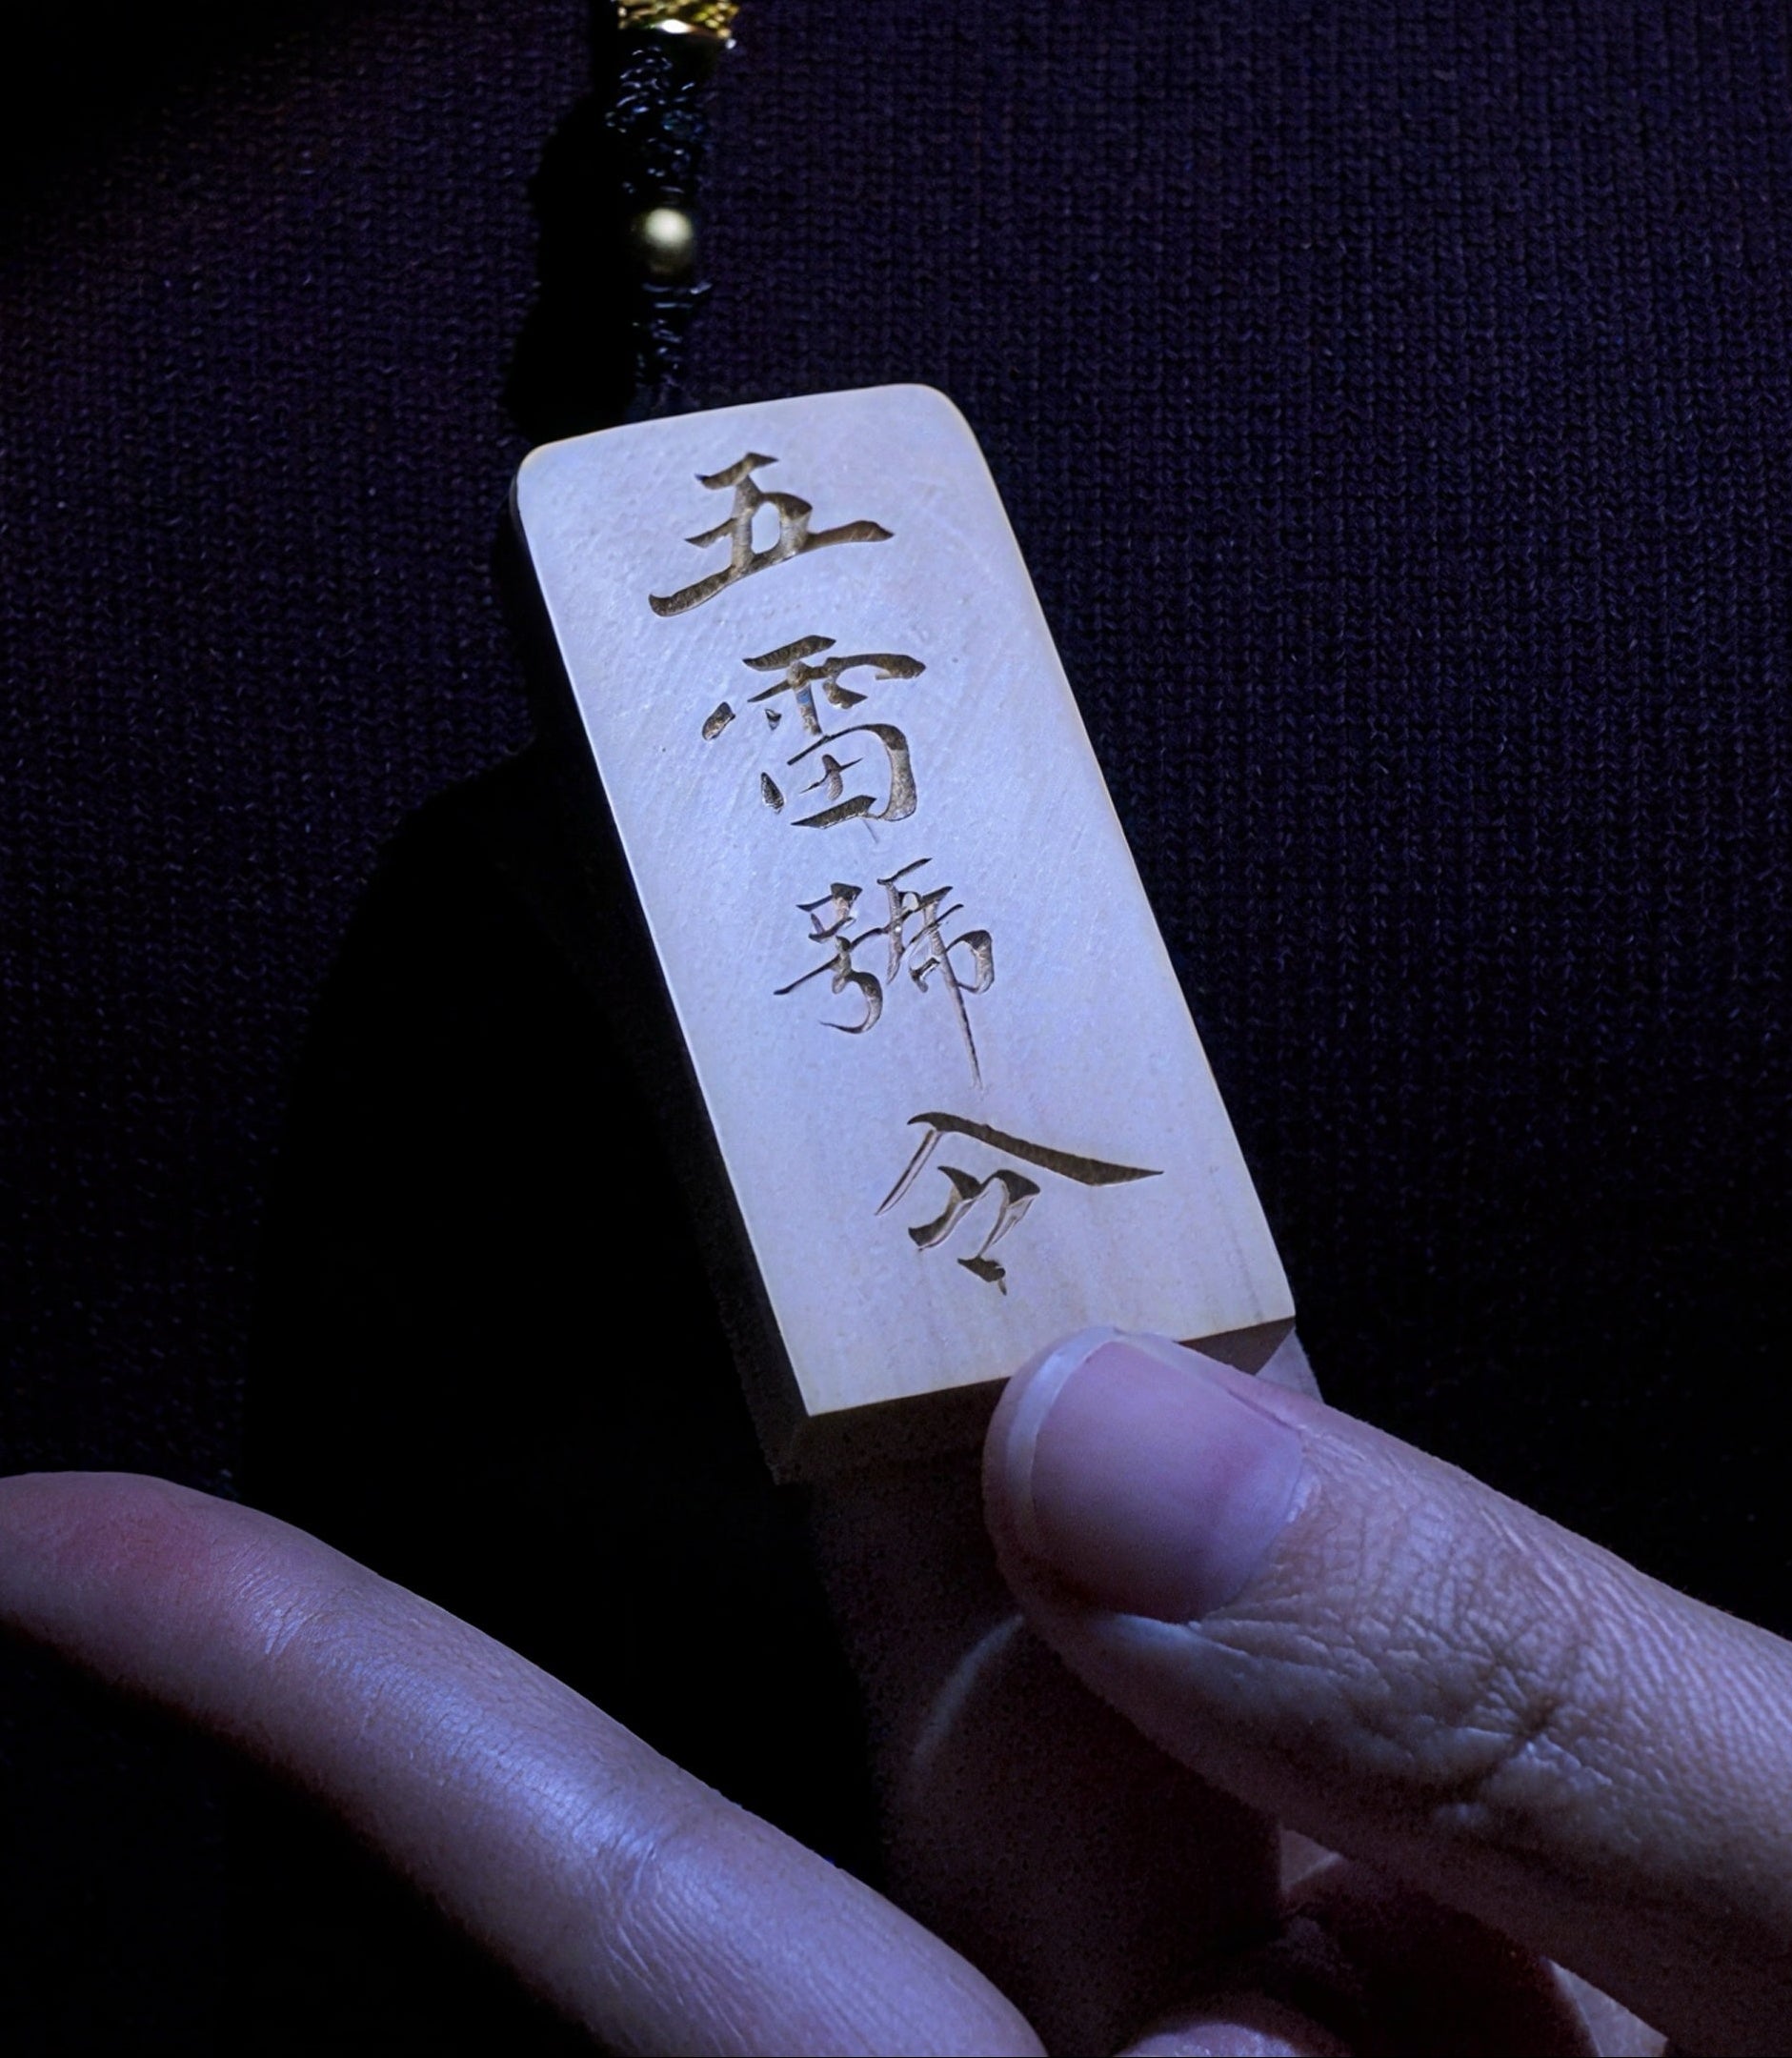 五雷號令